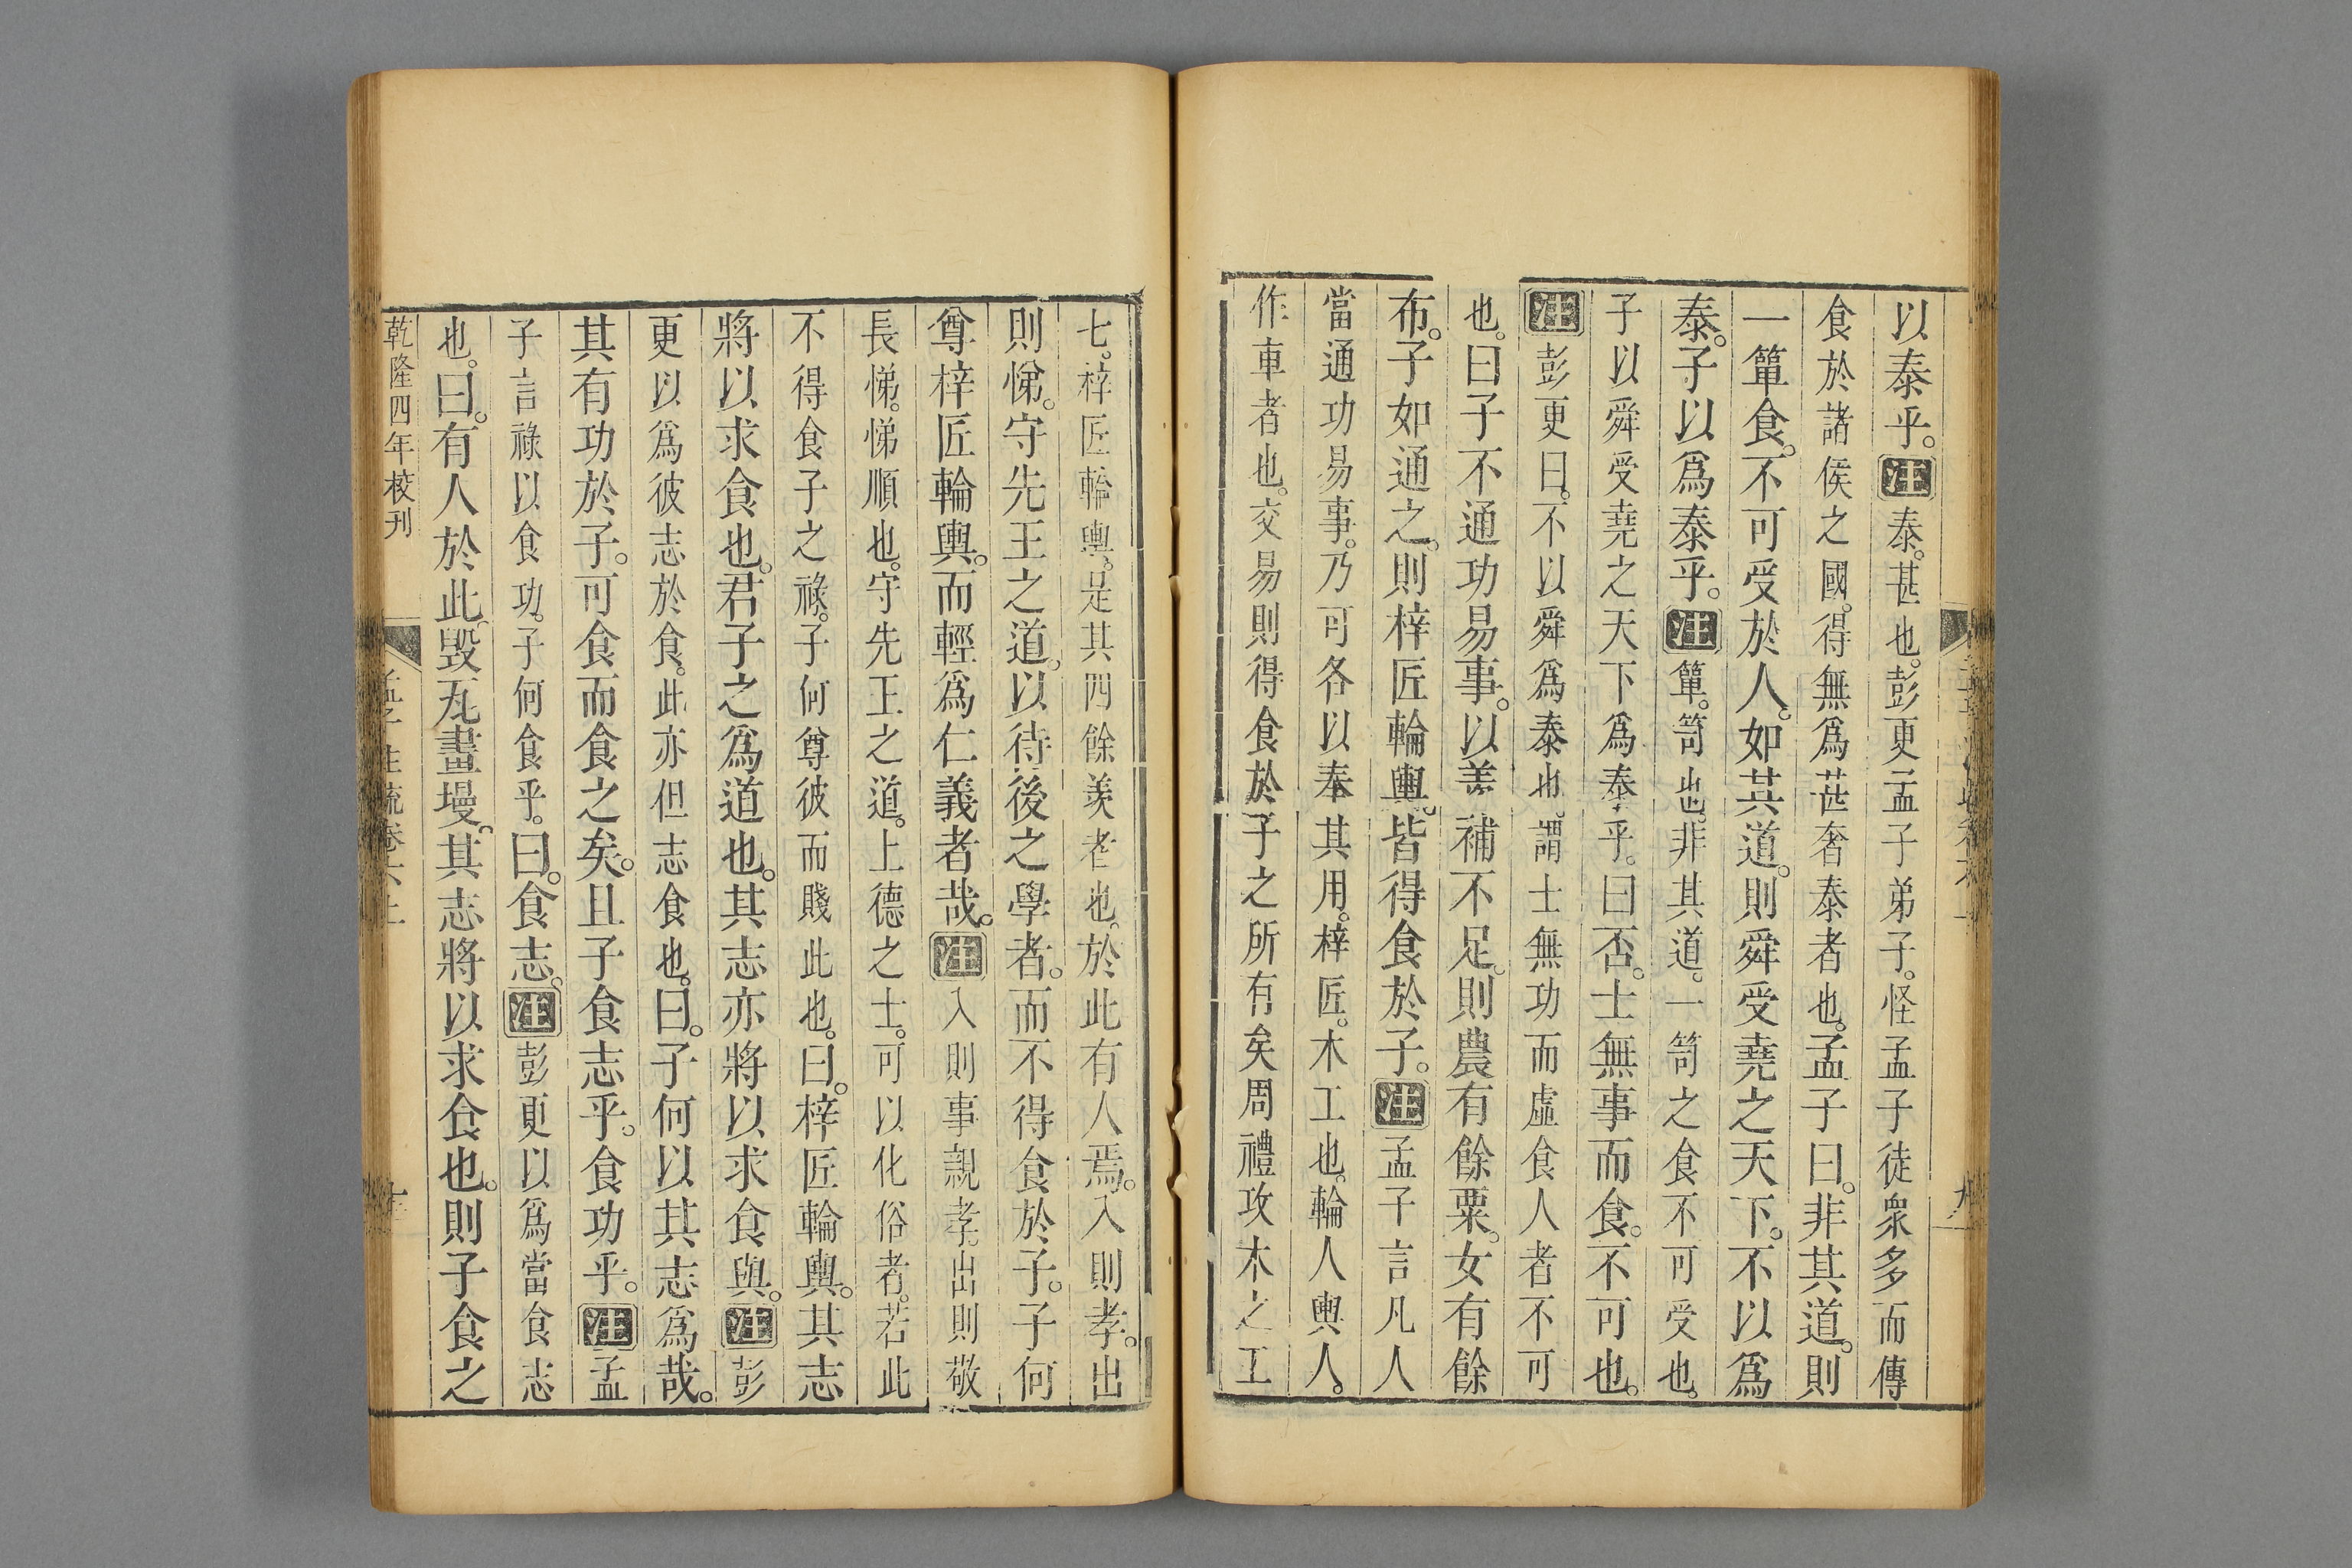 以泰乎。注泰。甚也。彭更孟子弟子。怪孟子徒衆多而傳
食於諸侯之國。得無爲甚奢泰者也。孟子曰。非其道。則
一簞食。不可受於人。如其道。則舜受堯之天下。不以爲
泰。子以爲泰乎。注簞。笥也。非其道。一笥之食不可受也。
子以舜受堯之天下爲泰乎。曰否。士無事而食。不可也。
注彭更曰。不以舜爲泰也。謂士無功而虛食人者不可
也。曰子不通功易事。以羨補不足。則農有餘粟。女有餘
布。子如通之。則梓匠輪輿。皆得食於子。注孟子言凡人
當通功易事。乃可各以奉其用。梓匠。木工也。輪人輿人。
作車者也。交易則得食於子之所有矣周禮攻木之工
七。梓匠輪輿。是其四餘羨者也。於此有人焉。入則孝。出
則悌。守先王之道。以待後之學者。而不得食於子。子何
尊梓匠輪輿。而輕爲仁義者哉。注入則事親孝。出則敬
長悌。悌順也。守先王之道。上德之士。可以化俗者。若此
不得食子之祿。子何尊彼而賤此也。曰。梓匠輪輿。其志
將以求食也。君子之爲道也。其志亦將以求食與。注彭
更以爲彼志於食。此亦但志食也。曰。子何以其志爲哉。
其有功於子。可食而食之矣。且子食志乎。食功乎。注孟
子言祿以食功。子何食乎。曰。食志。注彭更以爲當食志
也。曰。有人於此。毀瓦畫墁。其志將以求食也。則子食之
乾隆四年校刊